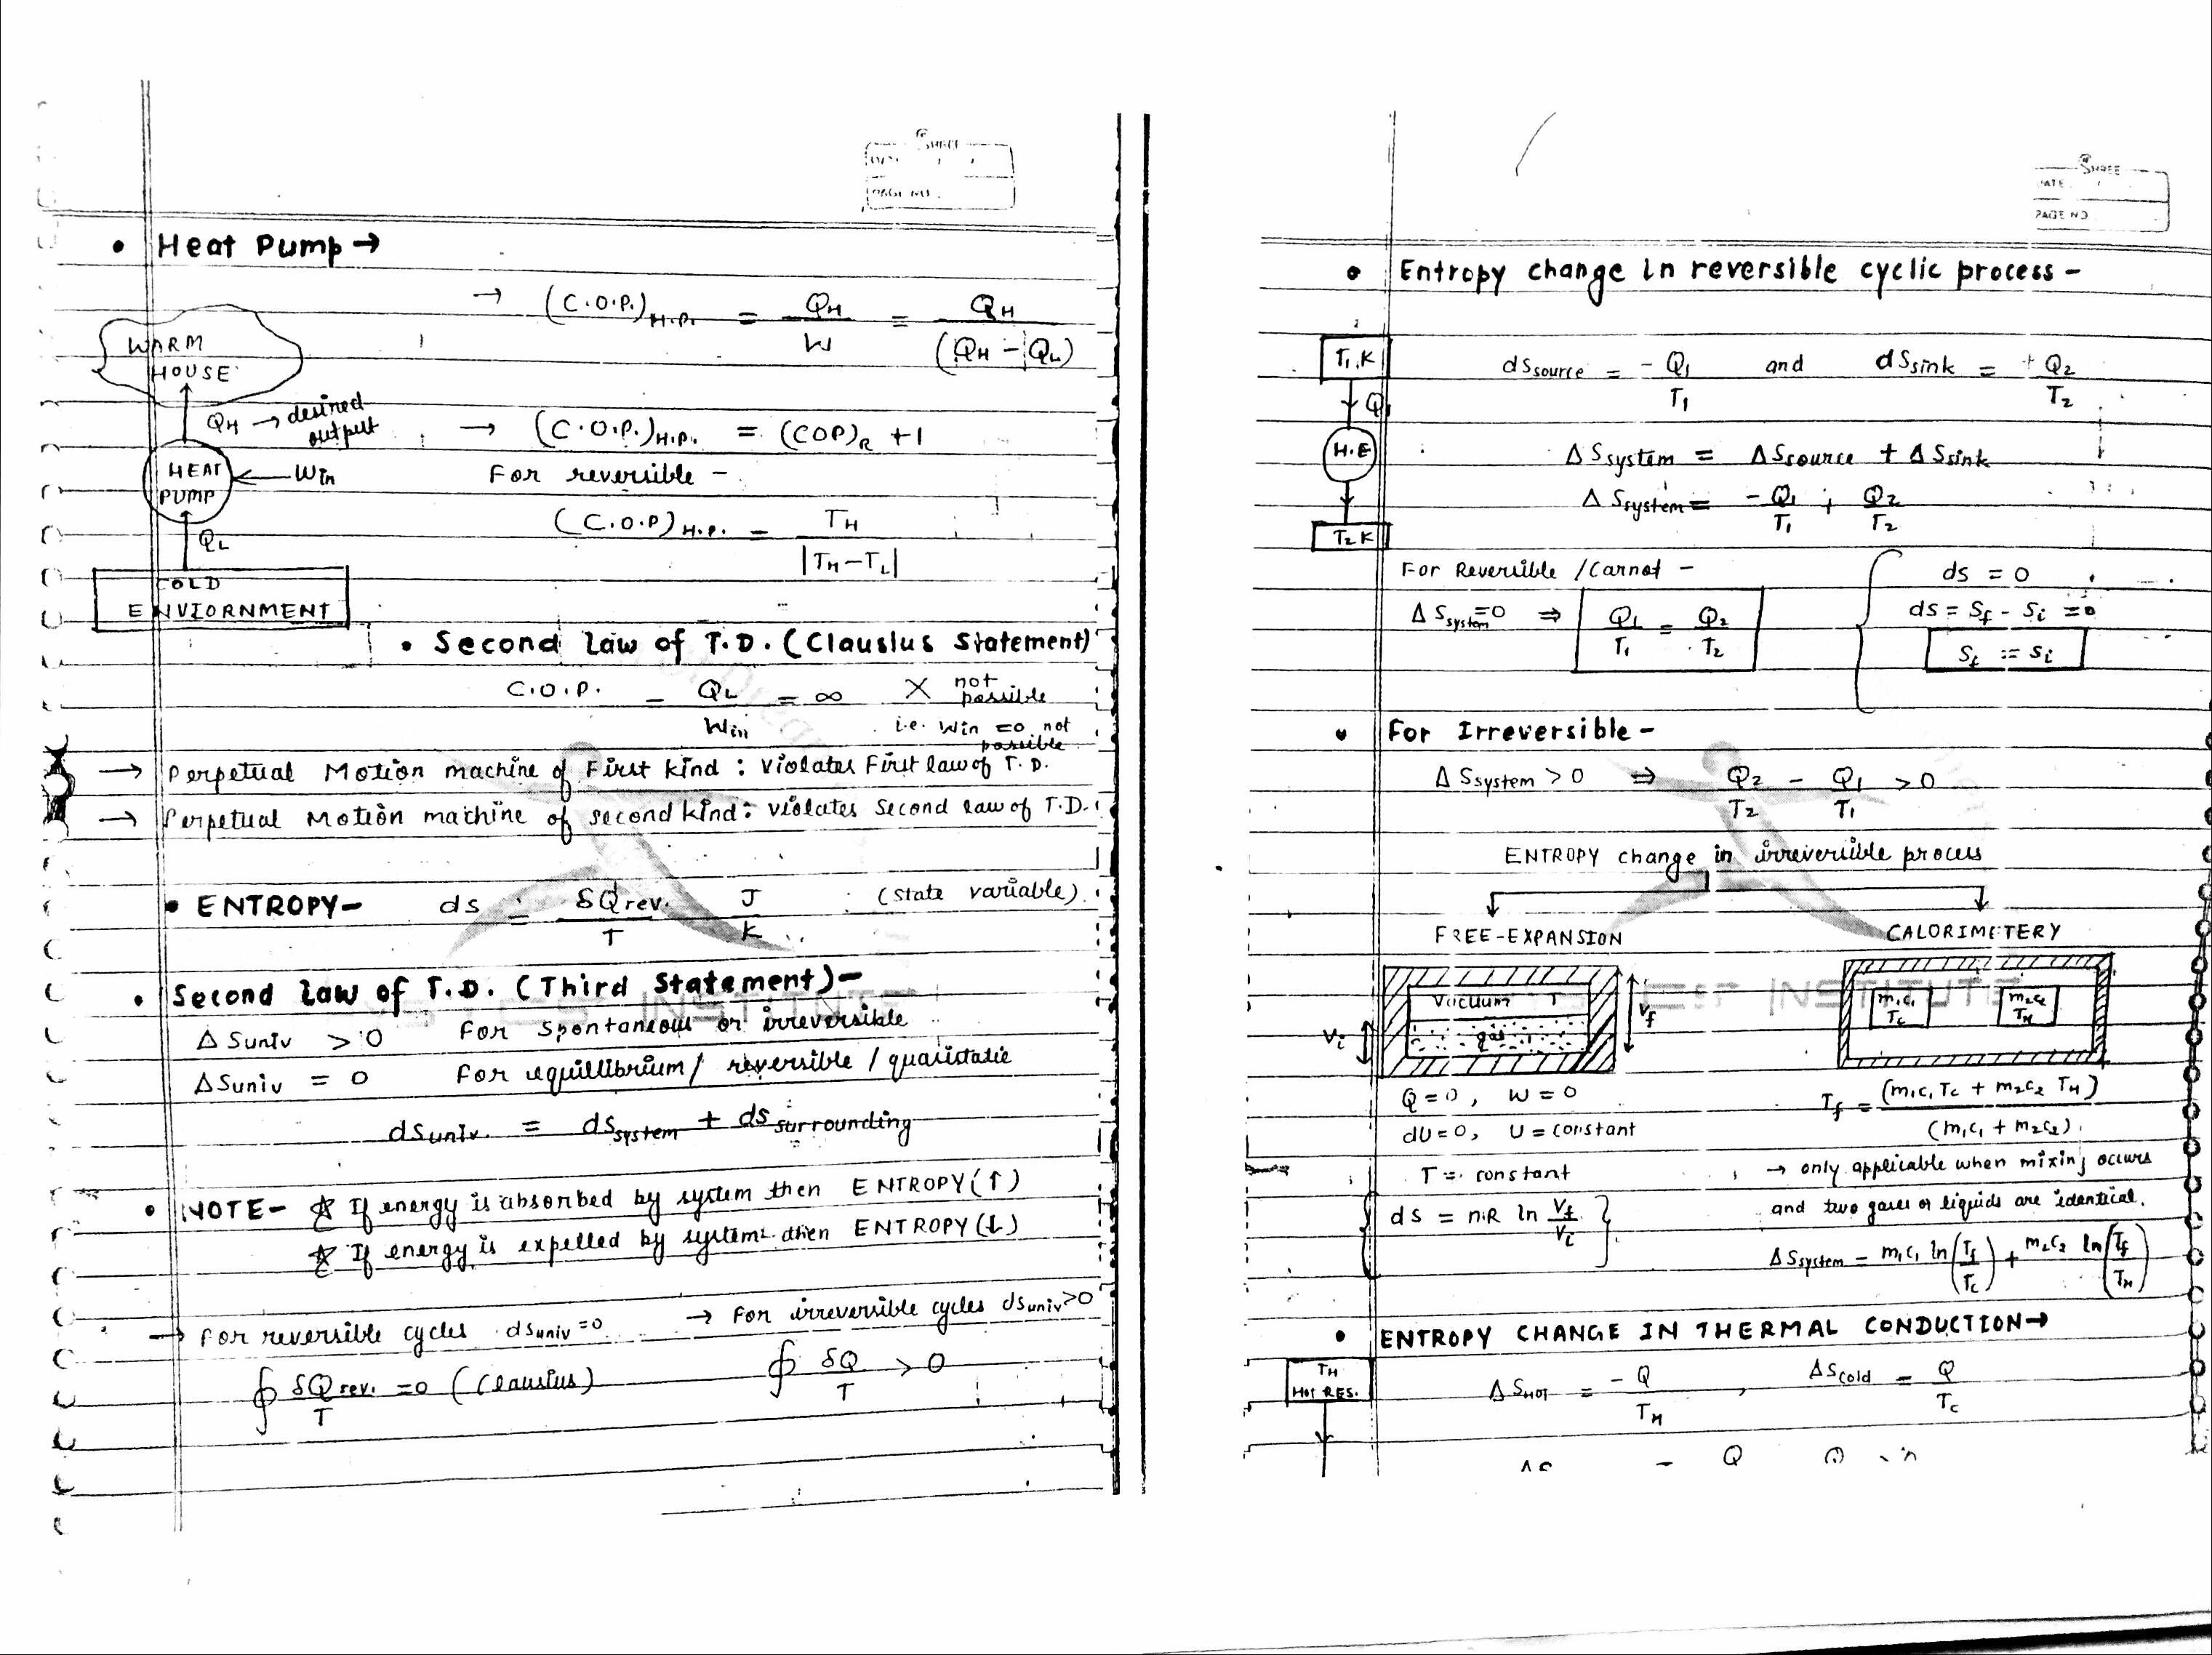 SHREE
PAGE NO.
• Heat Pump →
→ (C.O.P.)H.P. = QH / W = QH / (QH - QL)
WARM
HOUSE
QH → desired
output
→ (C.O.P.)H.P. = (COP)R + 1
HEAT
PUMP
← Win
For reversible -
(C.O.P)H.P. = TH / |TH - TL|
QL
COLD
ENVIORNMENT
• Second Law of T.D. (Clausius Statement)
C.O.P. = QL / Win = ∞ X not possible
i.e. Win = 0 not
possible
→ Perpetual Motion machine of First kind : Violates First law of T.D.
→ Perpetual Motion machine of second kind : Violates Second law of T.D.
• ENTROPY- ds = δQrev. / T J / K (state variable)
• Second Law of T.D. (Third Statement)-
INSTITUTE
ΔSuniv > 0 For Spontaneous or irreversible
ΔSuniv = 0 For equillibrium / reversible / quasistatic
dSuniv. = dSsystem + dSsurrounding
• NOTE- ☆ If energy is absorbed by system then ENTROPY (↑)
☆ If energy is expelled by system then ENTROPY (↓)
→ For reversible cycles dsuniv = 0 → For irreversible cycles dsuniv > 0
∮ δQrev. / T = 0 (Clausius) ∮ δQ / T > 0
SHREE
DATE
PAGE NO
• Entropy change in reversible cyclic process -
T1,K
dSsource = - Q1 / T1 and dSsink = + Q2 / T2
Q1
H.E
ΔSsystem = ΔSsource + ΔSsink
ΔSsystem = -Q1 / T1 + Q2 / T2
T2 K
For Reversible / Carnot - ds = 0
ΔSsystem = 0 ⇒ Q1 / T1 = Q2 / T2 ds = Sf - Si = 0
Sf = Si
• For Irreversible -
ΔSsystem > 0 ⇒ Q2 / T2 - Q1 / T1 > 0
ENTROPY change in irreversible process
FREE-EXPANSION CALORIMETERY
INSTITUTE
Vacuum
gas
Vi
Vf
m1c1
Tc
m2c2
TH
Q = 0, W = 0
Tf = (m1c1Tc + m2c2 TH) / (m1c1 + m2c2)
dU = 0, U = constant
T = constant
→ only applicable when mixing occurs
and two gases or liquids are identical.
ds = nR ln Vf / Vi
ΔSsystem = m1c1 ln (Tf / Tc) + m2c2 ln (Tf / TH)
• ENTROPY CHANGE IN THERMAL CONDUCTION →
TH
HOT RES.
ΔSHOT = -Q / TH , ΔScold = Q / Tc